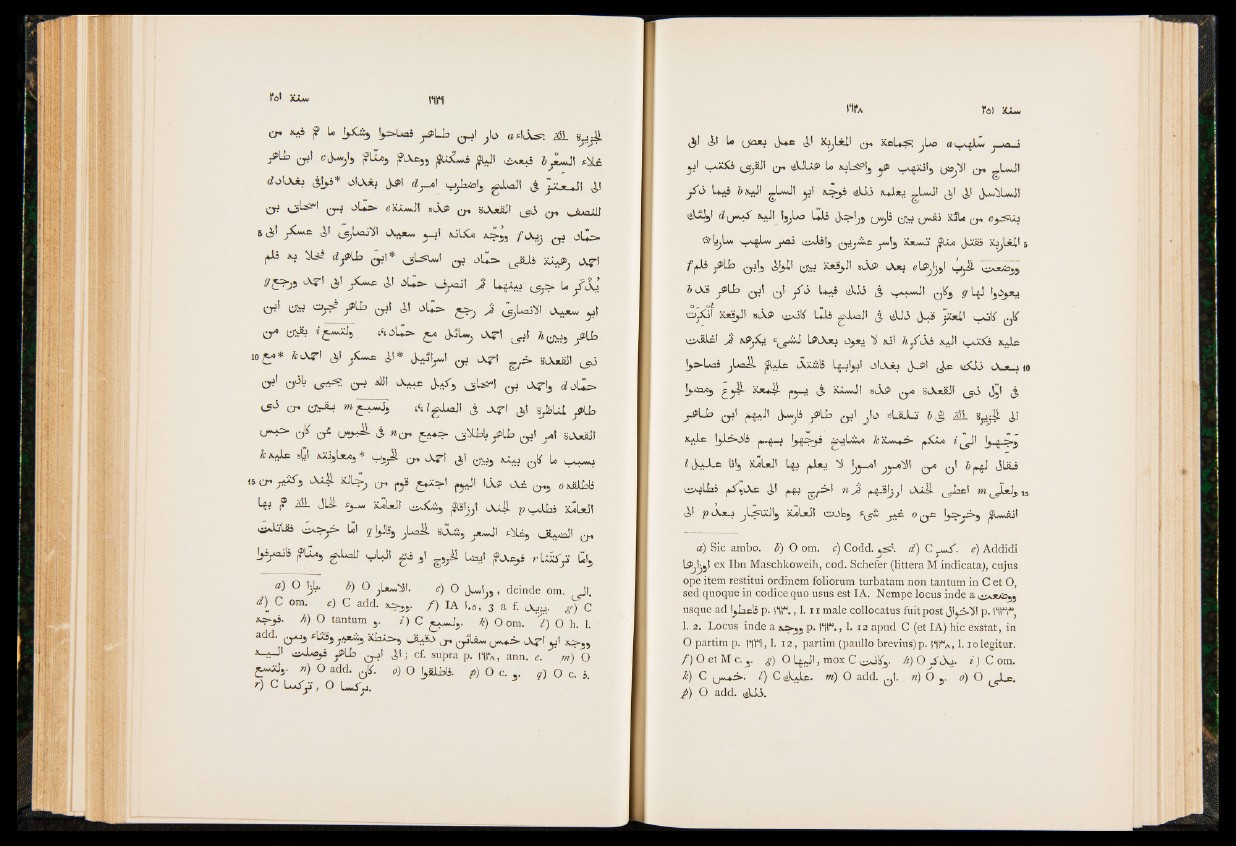 سنة ٢٥١ ١٦٣٨
نصر سلهب a صار بجماعة من المغاربة الى عمل بعض ما الى ابى
الساج من الارض وانتهب هو واصحابه ما هنالك من القرى فكتب ابو
السلاسل الى ابى الساج يعلمه ذلك فوجّه ابو الساج اليه b فيما ذكر
بنحو c من مائة نفس بين فارس وراجل فلمّا صاروا اليه كبس d اولئك
5 المغاربة فقتل منهم تسعة واسر عشرين وافلت نصر سلهب ساريا ۞
ووضعت الحرب اوزارها e بعد هذه الوقعة بين الموالى وابن طاهر فلم f
يعودوا لها g وكان السبب فى ذلك فيما ذكر ان ابن طاهر قد b
كان كاتب المعتزّ قبل ذلك فى الصلح فلمّا كانت هذه الوقعة أُنكرت
عليه فكتب اليه فذكر h انه لا يعود بعدها لشىء يكرهه ثم اغلقت
10 بعد ذلك على اهل بغداد ابوابها فاشتدّ عليهم الحصار فصاحوا
فى اول ذى القعدة من هذه السنة فى يوم الجمعة الجوع ومضوا
الى الجزيرة التى b تلقاء دار ابن طاهر فارسل اليهم ابن طاهر
وجّهوا الىّ i منكم خمسة k مشايخ فوجّهوا بهم فادخلوا عليه
فقال لهم b ان من الامور امورا لا يعلم بها العامّة وانا عليل l
15 ولعلّى m اعطى الجند ارزاقهم ثم n اخرج بهم الى عدوّكم فطابت
انفسهم وخرجوا عن o غير شىء وعادت العامّة والتجّار بعد p الى
a) Sic ambo. b) O om. c) Codd. نحو. d) C كسر. e) Addidi
اوزارها ex Ibn Maschkoweih, cod. Schefer (littera M indicata), cujus
ope item restitui ordinem foliorum turbatam non tantum in C et O,
sed quoque in codice quo usus est IA. Nempe locus inde a ووضعت
usque ad p. ١٦٤٠, l. 11 male collocatus fuit post الاخوال p. ١٦٣٣,
l. 2. Locus inde a ووجه p. ١٦٣٠, l. 12 apud C (et IA) hic exstat, in
O partim p. ١٦٣٩, l. 12, partim (paullo brevius) p. ١٦٣٨, l. 10 legitur.
f) O et M c. و. g) O اليها, mox C وكانت. h) O يذكر. i) C om.
k) C خمس. l) C عليك. m) O add. ان. n) O و. o) O على.
p) O add. ذلك.
سنة ٢٥١ ١٦٣٩
الجزيرة التى بحذاء a دار ابن طاهر فصاحوا وشكوا ما هم فيه من
غلاء السعر b فبعث اليهم فسكّنهم ووعدهم ومنّاهم وارسل c ابن طاهر
الى المعتزّ فى الصلح واضطرب امر d اهل بغداد *فوافى بغداد d
للنصف من ذى القعدة من هذه السنة e حماد بن اسحاق بن
5 حماد بن زيد f ووُجّه مكانه ابو سعيد الانصارىّ الى عسكر ابى
احمد رهينة فلقى حماد بن اسحاق *ابن طاهر d فخلا به فلم
يُذكر ما جرى بينهما ثم انصرف حماد الى عسكر ابى احمد ورجع g
ابو سعيد الانصارىّ ثم رجع حماد الى ابن طاهر فجرت بين ابن
طاهر وبين h ابى احمد رسائل مع حماد ۞ ولتسع i بقين من
10 ذى القعدة خرج احمد بن اسرائيل *الى عسكر ابى احمد k *مع
حماد d واحمد بن اسحاق وكيل عبيد الله بن يحيى باذن ابن
طاهر لمناظرة ابى احمد فى الصلح l ۞ ولسبع m بقين من ذى
القعدة امر ابن طاهر باطلاق جميع من n فى الحبوس ممن كان حبس
بسبب ما كان بينه وبين ابى احمد من الحروب *ومعاونته ايّاه عليه k
15 فاطلقه o ومن غد هذا اليوم اجتمع قوم من رجّالة الجند وكثير من
العامّة فطلب p الجند ارزاقهم وشكت العامّة سوء الحال التى هم بها
من الضيف وغلاء السعر وشدّة الحصار وقالوا q امّا خرجت فقاتلت
وامّا تركتنا r فوعدهم ايضا الخروج او فتح الباب للصلح ومنّاهم فانصرفوا
a) O بازا. b) O الاسعار. c) O وراسل, deinde om. الى.
d) C om. e) C add. ووجه. f) IA ١٠٥, 3 a f. يزيد. g) C
فوجه. h) O tantum و. i) C ولسبع. k) O om. l) O h. l.
add. ووجه ابو احمد خمس سفائن من دقيق وحنطة وشعير وقثاء وتين
الى ابن طاهر فوصلت اليه; cf. supra p. ١٦٣٨, ann. e. m) O
ولتسع. n) O add. كان. o) O فاطلقوا. p) O c. و. q) O c. ف.
r) C, O